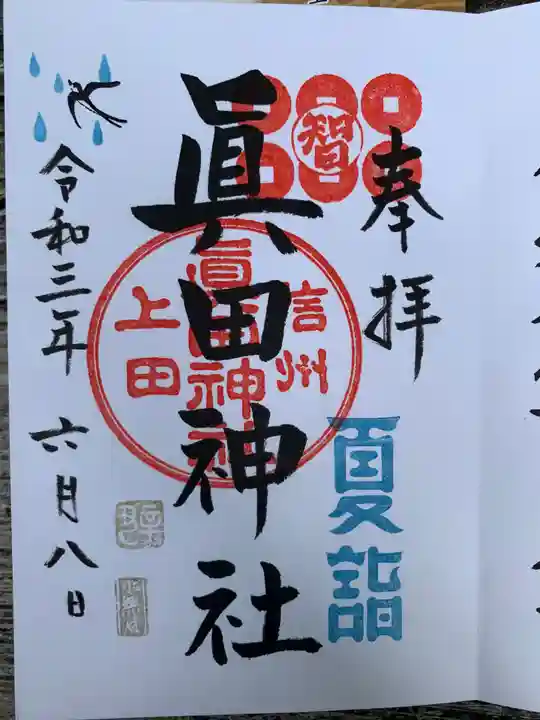 奉拝
智
夏詣
眞田神社
信州
眞田神社
上田
令和三年 六月八日